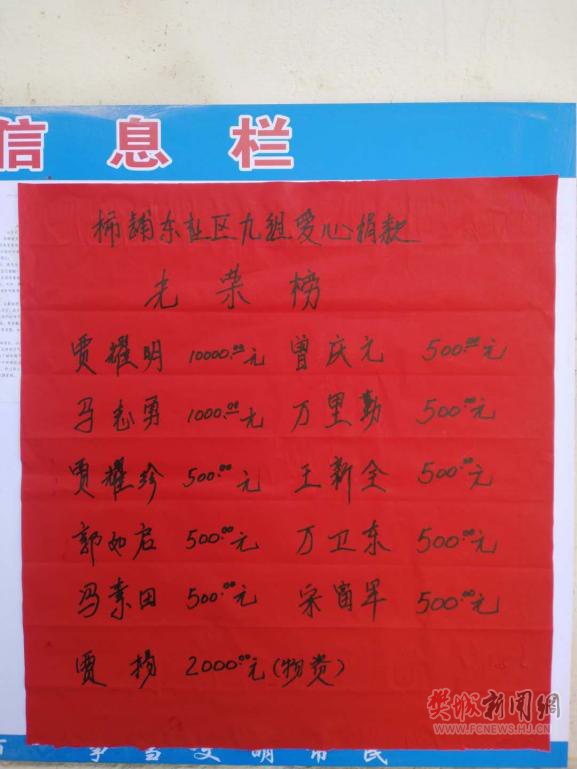 信息栏
柿铺东社区九组爱心捐款
光荣榜
贾耀明 10000.00元 曾庆元 500.00元
马志勇 1000.00元 万里勤 500.00元
贾耀珍 500.00元 王新全 500.00元
郭如启 500.00元 万卫东 500.00元
冯素田 500.00元 宋富军 500.00元
贾杨 2000.00元(物资)
争当文明市民
樊城新闻網
WWW.FCNEWS.HJ.CN